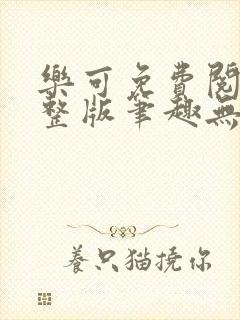 樂可免費閱
整版筆趣無
養只猫撓你